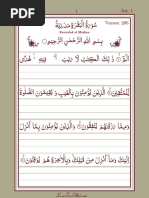 1 Juz 1
سُوْرَةُ الْبَقَرَةِ مَدَنِيَّةٌ
Verses: 286
Revealed at Medina
بِسْمِ اللّٰهِ الرَّحْمٰنِ الرَّحِيْمِ
الٓمّٓ ذٰلِكَ الْكِتٰبُ لَا رَيْبَ فِيْهِ هُدًى
لِّلْمُتَّقِيْنَ الَّذِيْنَ يُؤْمِنُوْنَ بِالْغَيْبِ وَيُقِيْمُوْنَ الصَّلٰوةَ
وَمِمَّا رَزَقْنٰهُمْ يُنْفِقُوْنَ وَالَّذِيْنَ يُؤْمِنُوْنَ بِمَآ اُنْزِلَ
اِلَيْكَ وَمَآ اُنْزِلَ مِنْ قَبْلِكَ وَبِالْاٰخِرَةِ هُمْ يُوْقِنُوْنَ